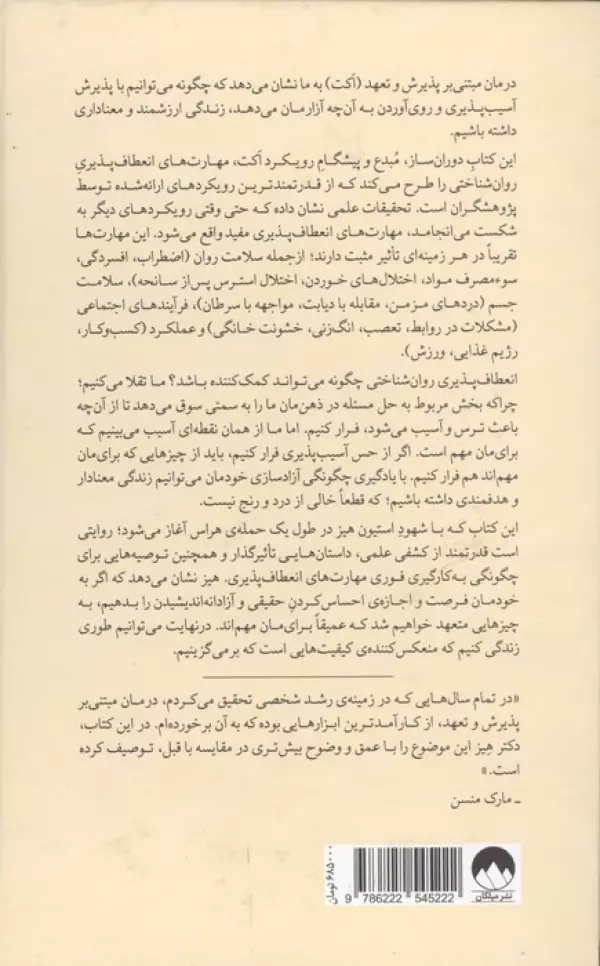 درمان مبتنی‌بر پذیرش و تعهد (اَکت) به ما نشان می‌دهد که چگونه می‌توانیم با پذیرش
آسیب‌پذیری و روی‌آوردن به آن‌چه آزارمان می‌دهد، زندگی ارزشمند و معناداری
داشته باشیم.
این کتابِ دوران‌ساز، مُبدع و پیشگامِ رویکرد اَکت، مهارت‌های انعطاف‌پذیریِ
روان‌شناختی را طرح می‌کند که از قدرتمندترین رویکردهای ارائه‌شده توسط
پژوهشگران است. تحقیقات علمی نشان داده که حتی وقتی رویکردهای دیگر به
شکست می‌انجامد، مهارت‌های انعطاف‌پذیری مفید واقع می‌شود. این مهارت‌ها
تقریباً در هر زمینه‌ای تأثیر مثبت دارند؛ ازجمله سلامت روان (اضطراب، افسردگی،
سوءمصرف مواد، اختلال‌های خوردن، اختلال استرس پس‌از سانحه)، سلامت
جسم (دردهای مزمن، مقابله با دیابت، مواجهه با سرطان)، فرآیندهای اجتماعی
(مشکلات در روابط، تعصب، انگ‌زنی، خشونت خانگی) و عملکرد (کسب‌وکار،
رژیم غذایی، ورزش).
انعطاف‌پذیری روان‌شناختی چگونه می‌تواند کمک‌کننده باشد؟ ما تقلا می‌کنیم؛
چراکه بخش مربوط به حل مسئله در ذهن‌مان ما را به سمتی سوق می‌دهد تا از آن‌چه
باعث ترس و آسیب می‌شود، فرار کنیم. اما ما از همان نقطه‌ای آسیب می‌بینیم که
برای‌مان مهم است. اگر از حس آسیب‌پذیری فرار کنیم، باید از چیزهایی که برای‌مان
مهم‌اند هم فرار کنیم. با یادگیری چگونگی آزادسازی خودمان می‌توانیم زندگی معنادار
و هدفمندی داشته باشیم؛ که قطعاً خالی از درد و رنج نیست.
این کتاب که با شهودِ استیون هیز در طول یک حمله‌ی هراس آغاز می‌شود؛ روایتی
است قدرتمند از کشفی علمی، داستان‌هایی تأثیرگذار و همچنین توصیه‌هایی برای
چگونگی به‌کارگیری فوری مهارت‌های انعطاف‌پذیری. هیز نشان می‌دهد که اگر به
خودمان فرصت و اجازه‌ی احساس‌کردنِ حقیقی و آزادانه‌اندیشیدن را بدهیم، به
چیزهایی متعهد خواهیم شد که عمیقاً برای‌مان مهم‌اند. درنهایت می‌توانیم طوری
زندگی کنیم که منعکس‌کننده‌ی کیفیت‌هایی است که برمی‌گزینیم.
«در تمام سال‌هایی که در زمینه‌ی رشد شخصی تحقیق می‌کردم، درمان مبتنی‌بر
پذیرش و تعهد، از کارآمدترین ابزارهایی بوده که به آن برخورده‌ام. در این کتاب،
دکتر هِیز این موضوع را با عمق و وضوح بیش‌تری در مقایسه با قبل، توصیف کرده
است.»
ـ مارک منسن
۶۸۵۰۰۰ تومان
9 786222 545222
نشر میلکان